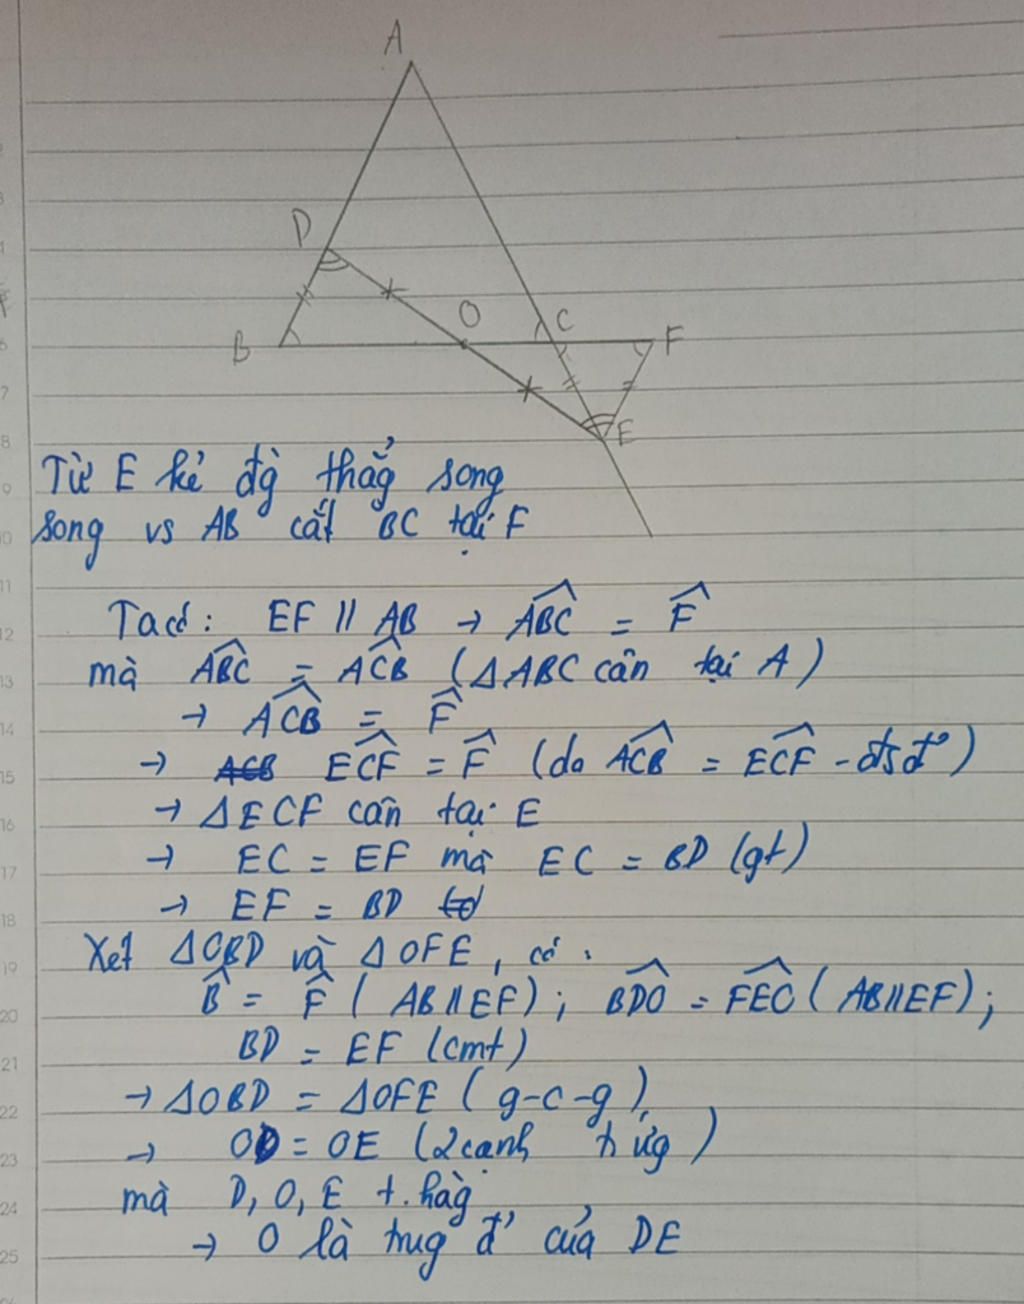 A
D
O
C
B
F
E
Từ E kẻ đg̀ thẳg song
song vs AB cắt BC tại F
Ta có: EF // AB → ABC = F
mà ABC = ACB (△ABC cân tại A)
→ ACB = F
→ ACB ECF = F (do ACB = ECF - đ²)
→ △ECF cân tại E
→ EC = EF mà EC = BD (gt)
→ EF = BD
Xét △OBD và △OFE, có:
B = F (AB//EF); BDO = FEO (AB//EF);
BD = EF (cmt)
→ △OBD = △OFE (g-c-g)
→ OD = OE (2 cạnh t/ ứg)
mà D, O, E t.hàg
→ O là trug đ' của DE